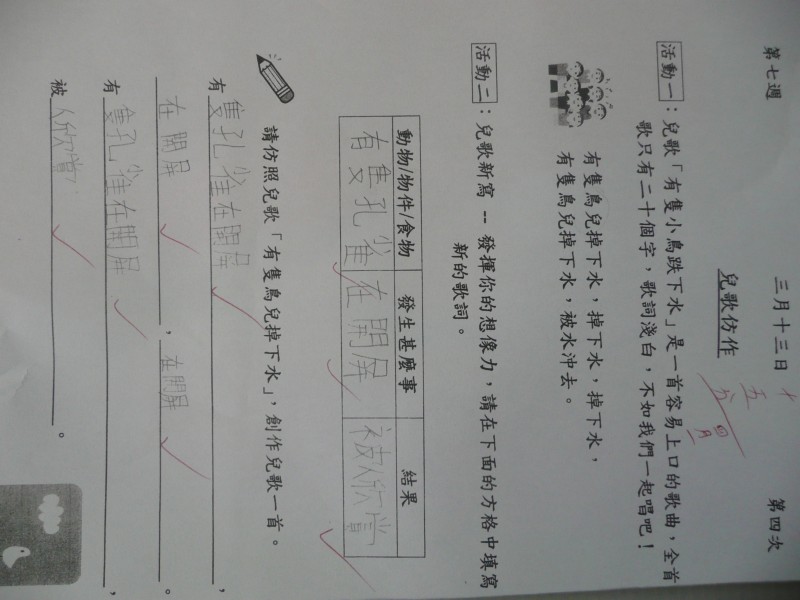 第七週 三月十三日 第四次
兒歌仿作
活動一：兒歌「有隻小鳥跌下水」是一首容易上口的歌曲，全首
歌只有二十個字，歌詞淺白，不如我們一起唱吧！
有隻鳥兒掉下水，掉下水，掉下水，
有隻鳥兒掉下水，被水沖去。
活動二：兒歌新寫 -- 發揮你的想像力，請在下面的方格中填寫
新的歌詞。
動物/物件/食物 發生甚麼事 結果
有隻孔雀 在開屏 被人欣賞
請仿照兒歌「有隻鳥兒掉下水」，創作兒歌一首。
有隻孔雀在開屏，
在開屏，在開屏。
有隻孔雀在開屏，
被人欣賞。